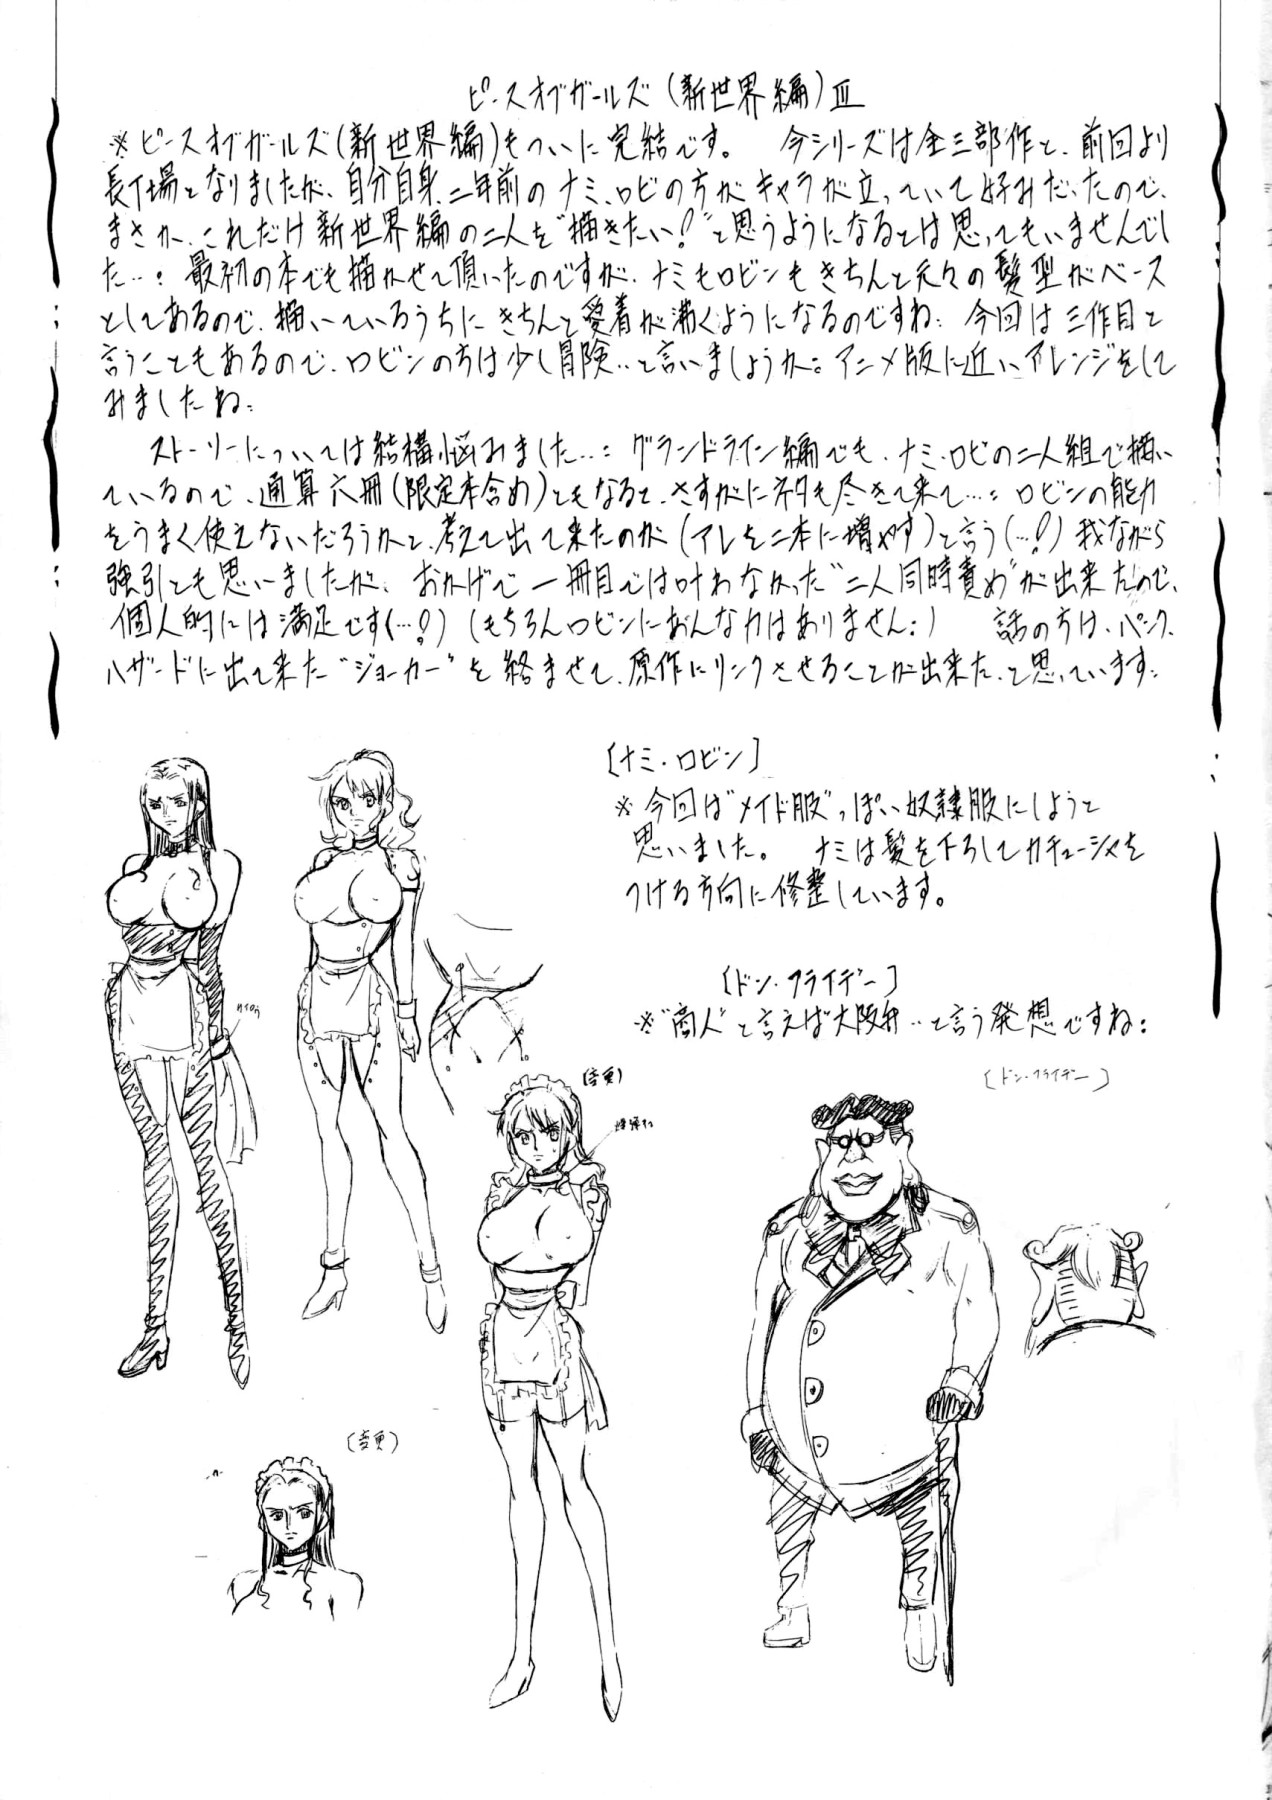 ピースオブガールズ(新世界編)Ⅲ
※ピースオブガールズ(新世界編)もついに完結です。 今シリーズは全三部作と、前回より
長丁場となりましたが、自分自身、二年前のナミ、ロビの方がキャラが立っていて好みだったので、
まさか、これだけ新世界編の二人を"描きたい!"と思うようになるとは思ってもいませんでし
た…: 最初の本でも描かせて頂いたのですが、ナミもロビンもきちんと元々の髪型がベース
としてあるので、描いているうちにきちんと愛着が沸くようになるのですね: 今回は三作目と
言うこともあるので、ロビンの方は少し冒険‥と言いましょうか。アニメ版に近いアレンジをして
みましたね:
ストーリーについては結構悩みました…: グランドライン編でも、ナミ・ロビの二人組で描い
ているので、通算六冊(限定本含め)ともなると、さすがにネタも尽きて来て…: ロビンの能力
をうまく使えないだろうかと、考えて出て来たのが(アレを二本に増やす)と言う(…!)我ながら
強引とも思いましたが、おかげで一冊目では叶わなかった"二人同時責め"が出来たので、
個人的には満足です(…!)(もちろんロビンにあんな力はありません:) 話の方は、パンク、
ハザードに出て来た"ジョーカー"を絡ませて、原作にリンクさせることが出来た、と思っています:
[ナミ・ロビン]
※今回は"メイド服"っぽい奴隷服にしようと
思いました。 ナミは髪を下ろしてカチューシャを
つける方向に修整しています。
[ドン・フライデー]
※"商人"と言えば大阪弁‥と言う発想ですね:
[ドン・フライデー]
(変更)
(変更)